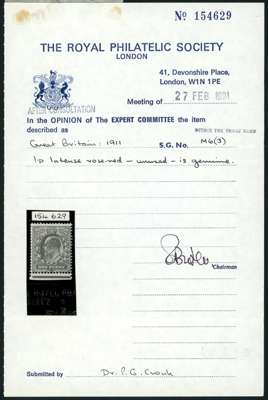 Nº 154629
THE ROYAL PHILATELIC SOCIETY
LONDON
41, Devonshire Place,
London, W1N 1PE
AFTER CONSULTATION
Meeting of 27 FEB 1991
In the OPINION of THE EXPERT COMMITTEE the item
described as
Great Britain: 1911 S.G. No. M6(3)
1D Intense rose-red – unused – is genuine.
154 629
Chairman
Submitted by Dr. P. G.